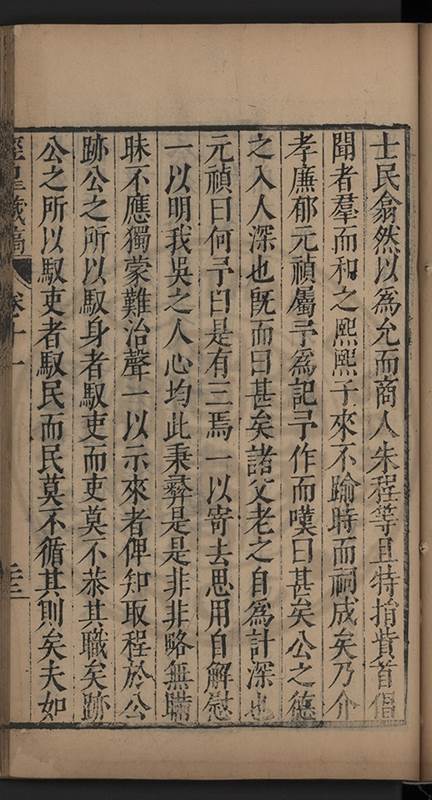 士民翕然以為允而商人朱程等且特捐貲首倡
聞者羣而和之熙熙子來不踰時而祠成矣乃介
孝廉郁元禎屬予為記予作而嘆曰甚矣公之德
之入人深也既而曰甚矣諸父老之自為計深也
元禎曰何予曰是有三焉一以寄去思用自解慰
一以明我吳之人心均此秉彝是是非非略無矇
昧不應獨蒙難治聲一以示來者俾知取程於公
跡公之所以馭身者馭吏而吏莫不恭其職矣跡
公之所以馭吏者馭民而民莫不循其則矣夫如
涇臯藏稿 卷十一